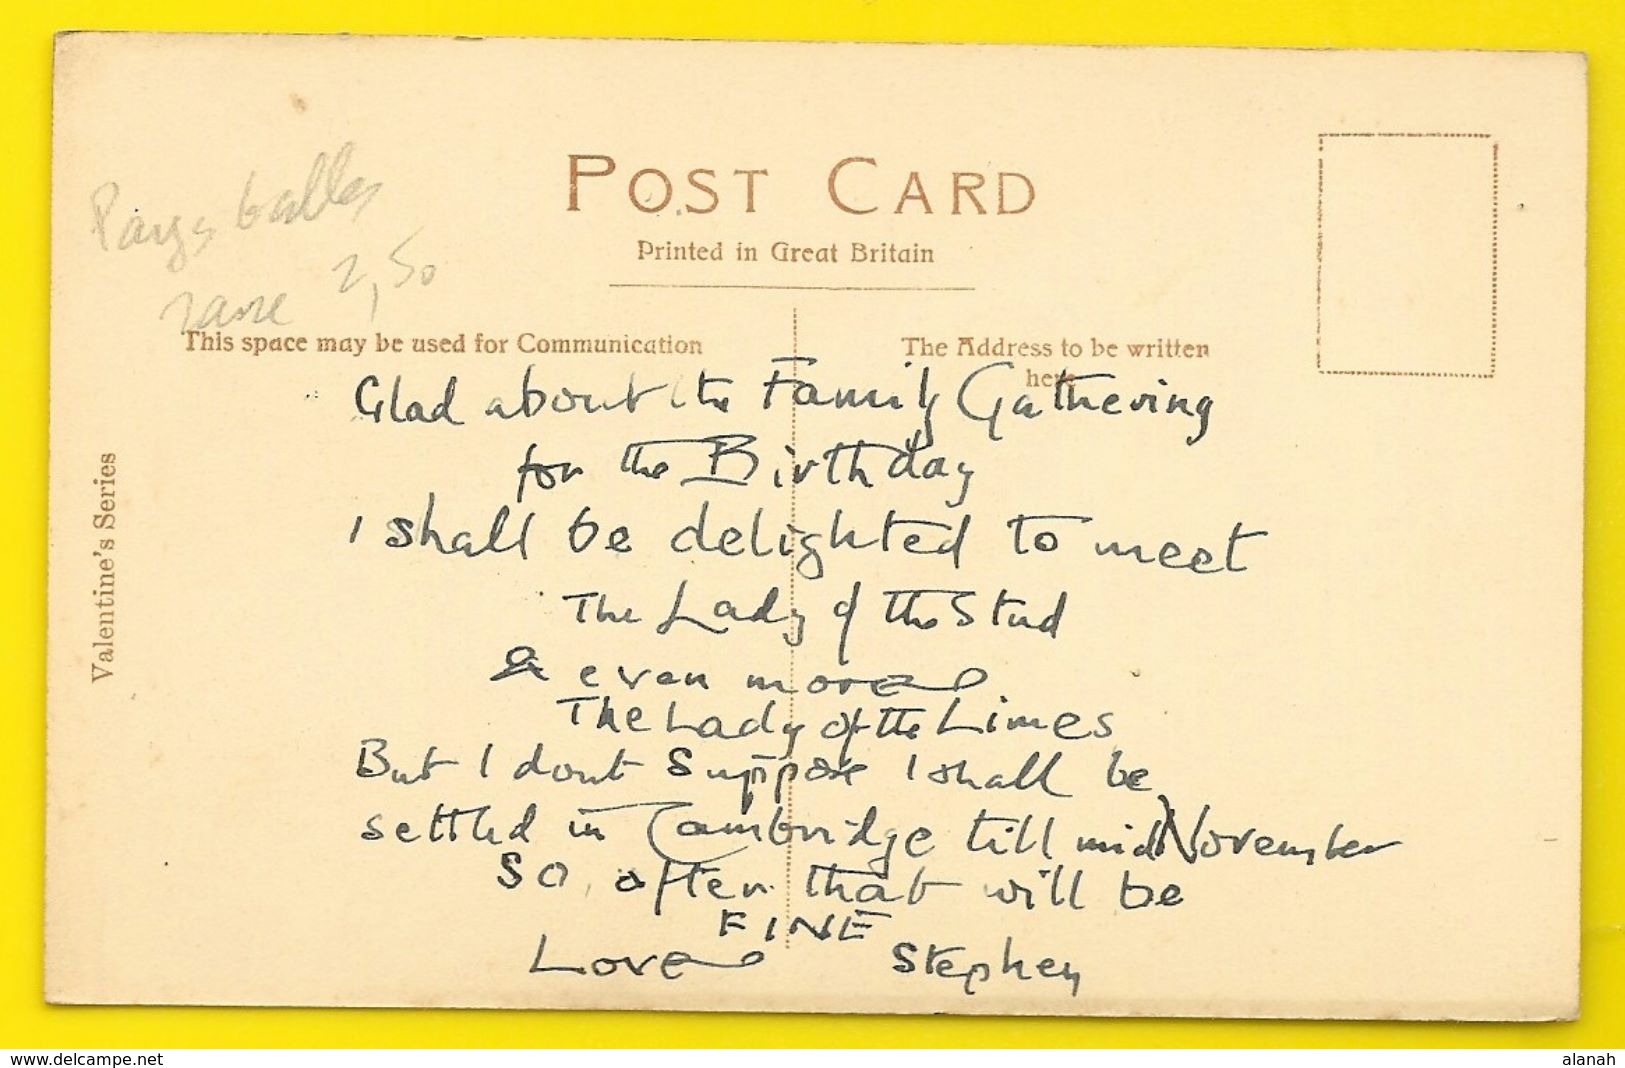 POST CARD
Printed in Great Britain
Pays Galles
rare 2,50
This space may be used for Communication
The Address to be written
here
Valentine's Series
Glad about the Family Gathering
for the Birthday
I shall be delighted to meet
The Lady of the Stud
& even more
The Lady of the Limes
But I dont Suppose I shall be
settled in Cambridge till mid November
So, after that will be
FINE
Love Stephen
www.delcampe.net
alanah